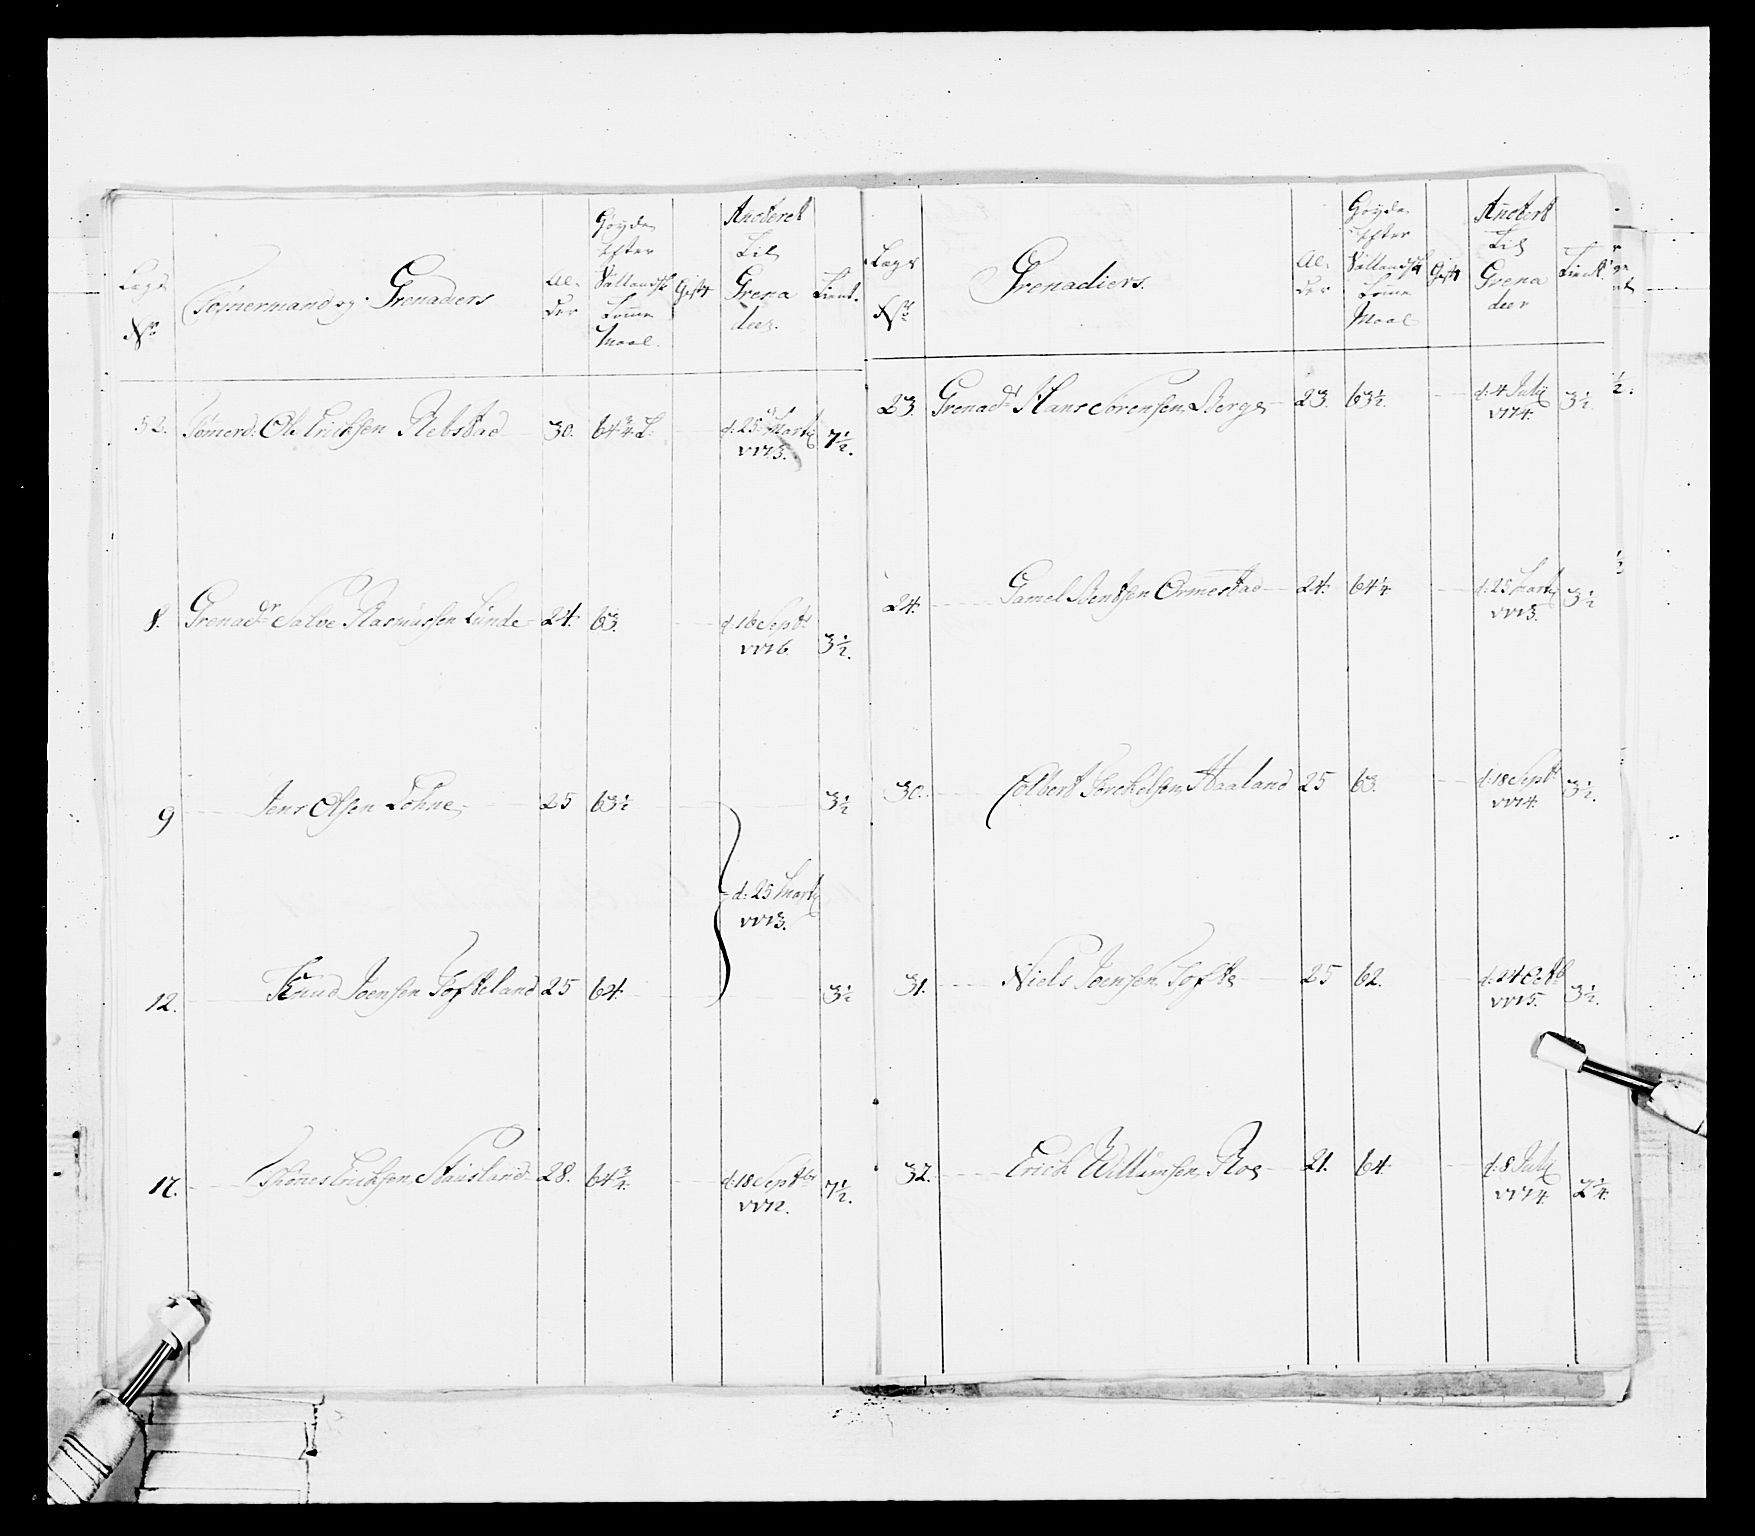 Lægs No
Tømermand og Grenadiers
Al-der
Høyde Efter Sællandsk Tomme Maal.
Gift
Anteret Til Grena deer.
Tient.
52. Tømerd: Ole Erichsen Rebstad 30. 64¾ T. d: 25 Martij 1773. 7½.
8. Grenadr Salve Rasmussen Lunde 24. 63. d: 16 Septr 1776. 3½.
9 Jens Olsen Løhne 25 63½ 3½
d: 25 Martij 1773.
12. Knud Joensen Tofteland 25 64. 3½
17. Thónes Erichsen Stausland 28. 64¾. d: 18 Septbr 1772. 7½.
Lægs No
Grenadiers.
Al-der
Høyde Efter Sællandsk Tomme Maal
Gift
Antert Til Grena deer
Tient.
23. Grenadr Hans Sørensen Berge 23. 63½. d: 4 Julij 1774. 3½
24. Gamel Bentsen Ormestad 24. 64¼ d: 25 Martij 1773. 3½
30. Colbert Torchelsen Haaland 25 63. d: 18 Septr 1774. 3½.
31. Niels Joensen Tofte 25 62. d: 24 Octb 1775. 3½.
32. Erich Willumsen Roe 21. 64. d: 8 Julij 1774. 2¼.